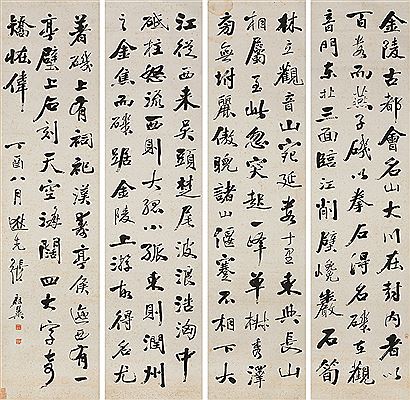 金陵古都會名山大川在封内者以
百數而燕子磯以拳石得名磯在觀
音門東北三面臨江削壁巉巖石筍
林立觀音山宛延數十里東與長山
相屬至此忽突起一峰單椒秀澤
旁無坿麗傲睨諸山偃蹇不相下大
江從西來吳頭楚尾波浪浩淼中
砥柱怒流西則大孤小孤東則潤州
之金焦而磯踞金陵上游故得名尤
著磯上有祠祀漢壽亭侯迤西有一
亭壁上石刻天空海闊四大字奇
矯雄偉
丁酉八月 先張